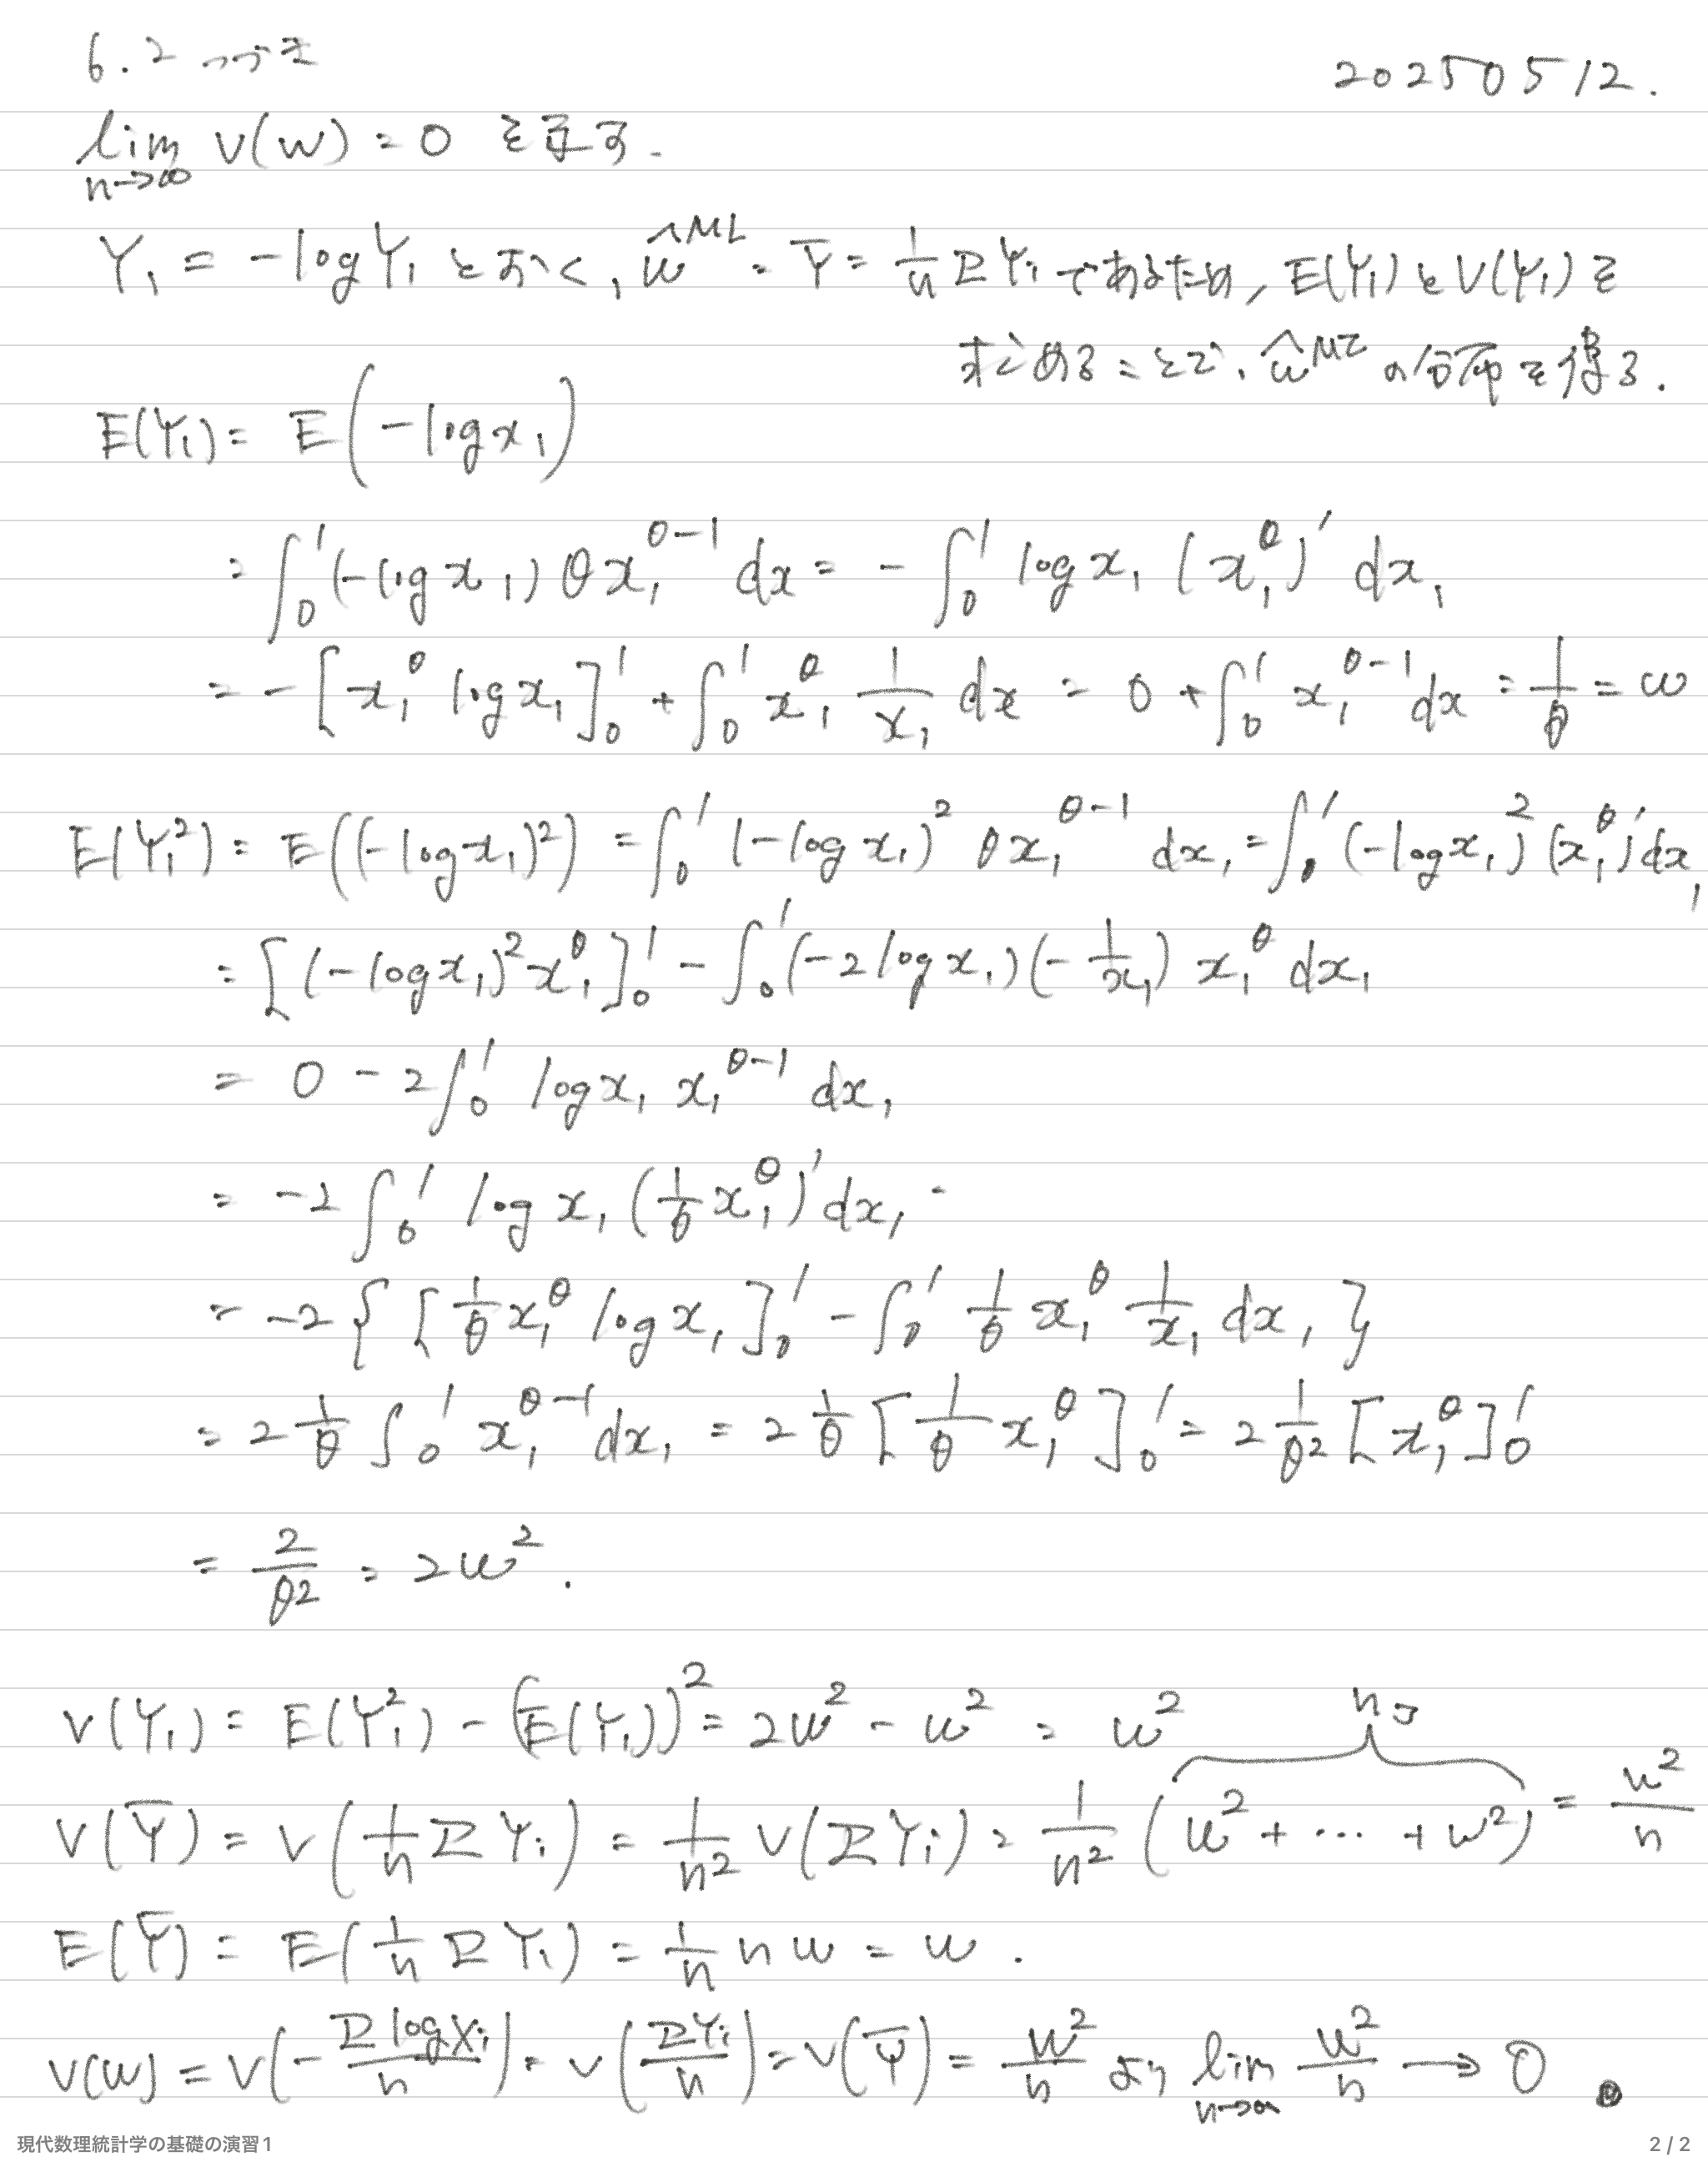 6.2 つづき
20250512.
lim n→∞ V(w) = 0 を示す.
Y₁ = -log Y₁ とおく, ŵ^ML = Ȳ = 1/n Σ Yᵢ であるため, E(Y₁) と V(Y₁) を
求めることで、ŵ^ML の分布を得る.
E(Y₁) = E(-log x₁)
= ∫₀¹ (-log x₁) θ x₁^(θ-1) dx = - ∫₀¹ log x₁ (x₁^θ)′ dx₁
= - [x₁^θ log x₁]₀¹ + ∫₀¹ x₁^θ 1/x₁ dx = 0 + ∫₀¹ x₁^(θ-1) dx = 1/θ = w
E(Y₁²) = E((-log x₁)²) = ∫₀¹ (-log x₁)² θ x₁^(θ-1) dx₁ = ∫₀¹ (-log x₁)² (x₁^θ)′ dx₁
= [(-log x₁)² x₁^θ]₀¹ - ∫₀¹ (-2 log x₁)(-1/x₁) x₁^θ dx₁
= 0 - 2 ∫₀¹ log x₁ x₁^(θ-1) dx₁
= -2 ∫₀¹ log x₁ (1/θ x₁^θ)′ dx₁
= -2 { [1/θ x₁^θ log x₁]₀¹ - ∫₀¹ 1/θ x₁^θ 1/x₁ dx₁ }
= 2 1/θ ∫₀¹ x₁^(θ-1) dx₁ = 2 1/θ [1/θ x₁^θ]₀¹ = 2 1/θ² [x₁^θ]₀¹
= 2/θ² = 2w².
V(Y₁) = E(Y₁²) - (E(Y₁))² = 2w² - w² = w²
nコ
V(Ȳ) = V(1/n Σ Yᵢ) = 1/n² V(Σ Yᵢ) = 1/n² (w² + ⋯ + w²) = w²/n
E(Ȳ) = E(1/n Σ Y₁) = 1/n n w = w.
V(w) = V(- Σ log Xᵢ / n) = V(Σ Yᵢ / n) = V(Ȳ) = w²/n より lim n→∞ w²/n → 0 。
現代数理統計学の基礎の演習1
2 / 2